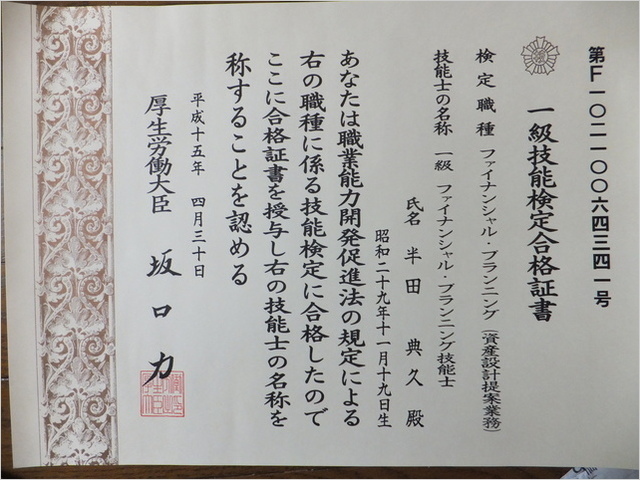 第F一〇二一〇〇六四三四一号
一級技能検定合格証書
検定職種 ファイナンシャル・プランニング(資産設計提案業務)
技能士の名称 一級 ファイナンシャル・プランニング技能士
氏名 半田 典久 殿
昭和二十九年十一月十九日生
あなたは職業能力開発促進法の規定による
右の職種に係る技能検定に合格したので
ここに合格証書を授与し右の技能士の名称を
称することを認める
平成十五年 四月三十日
厚生労働大臣 坂口力